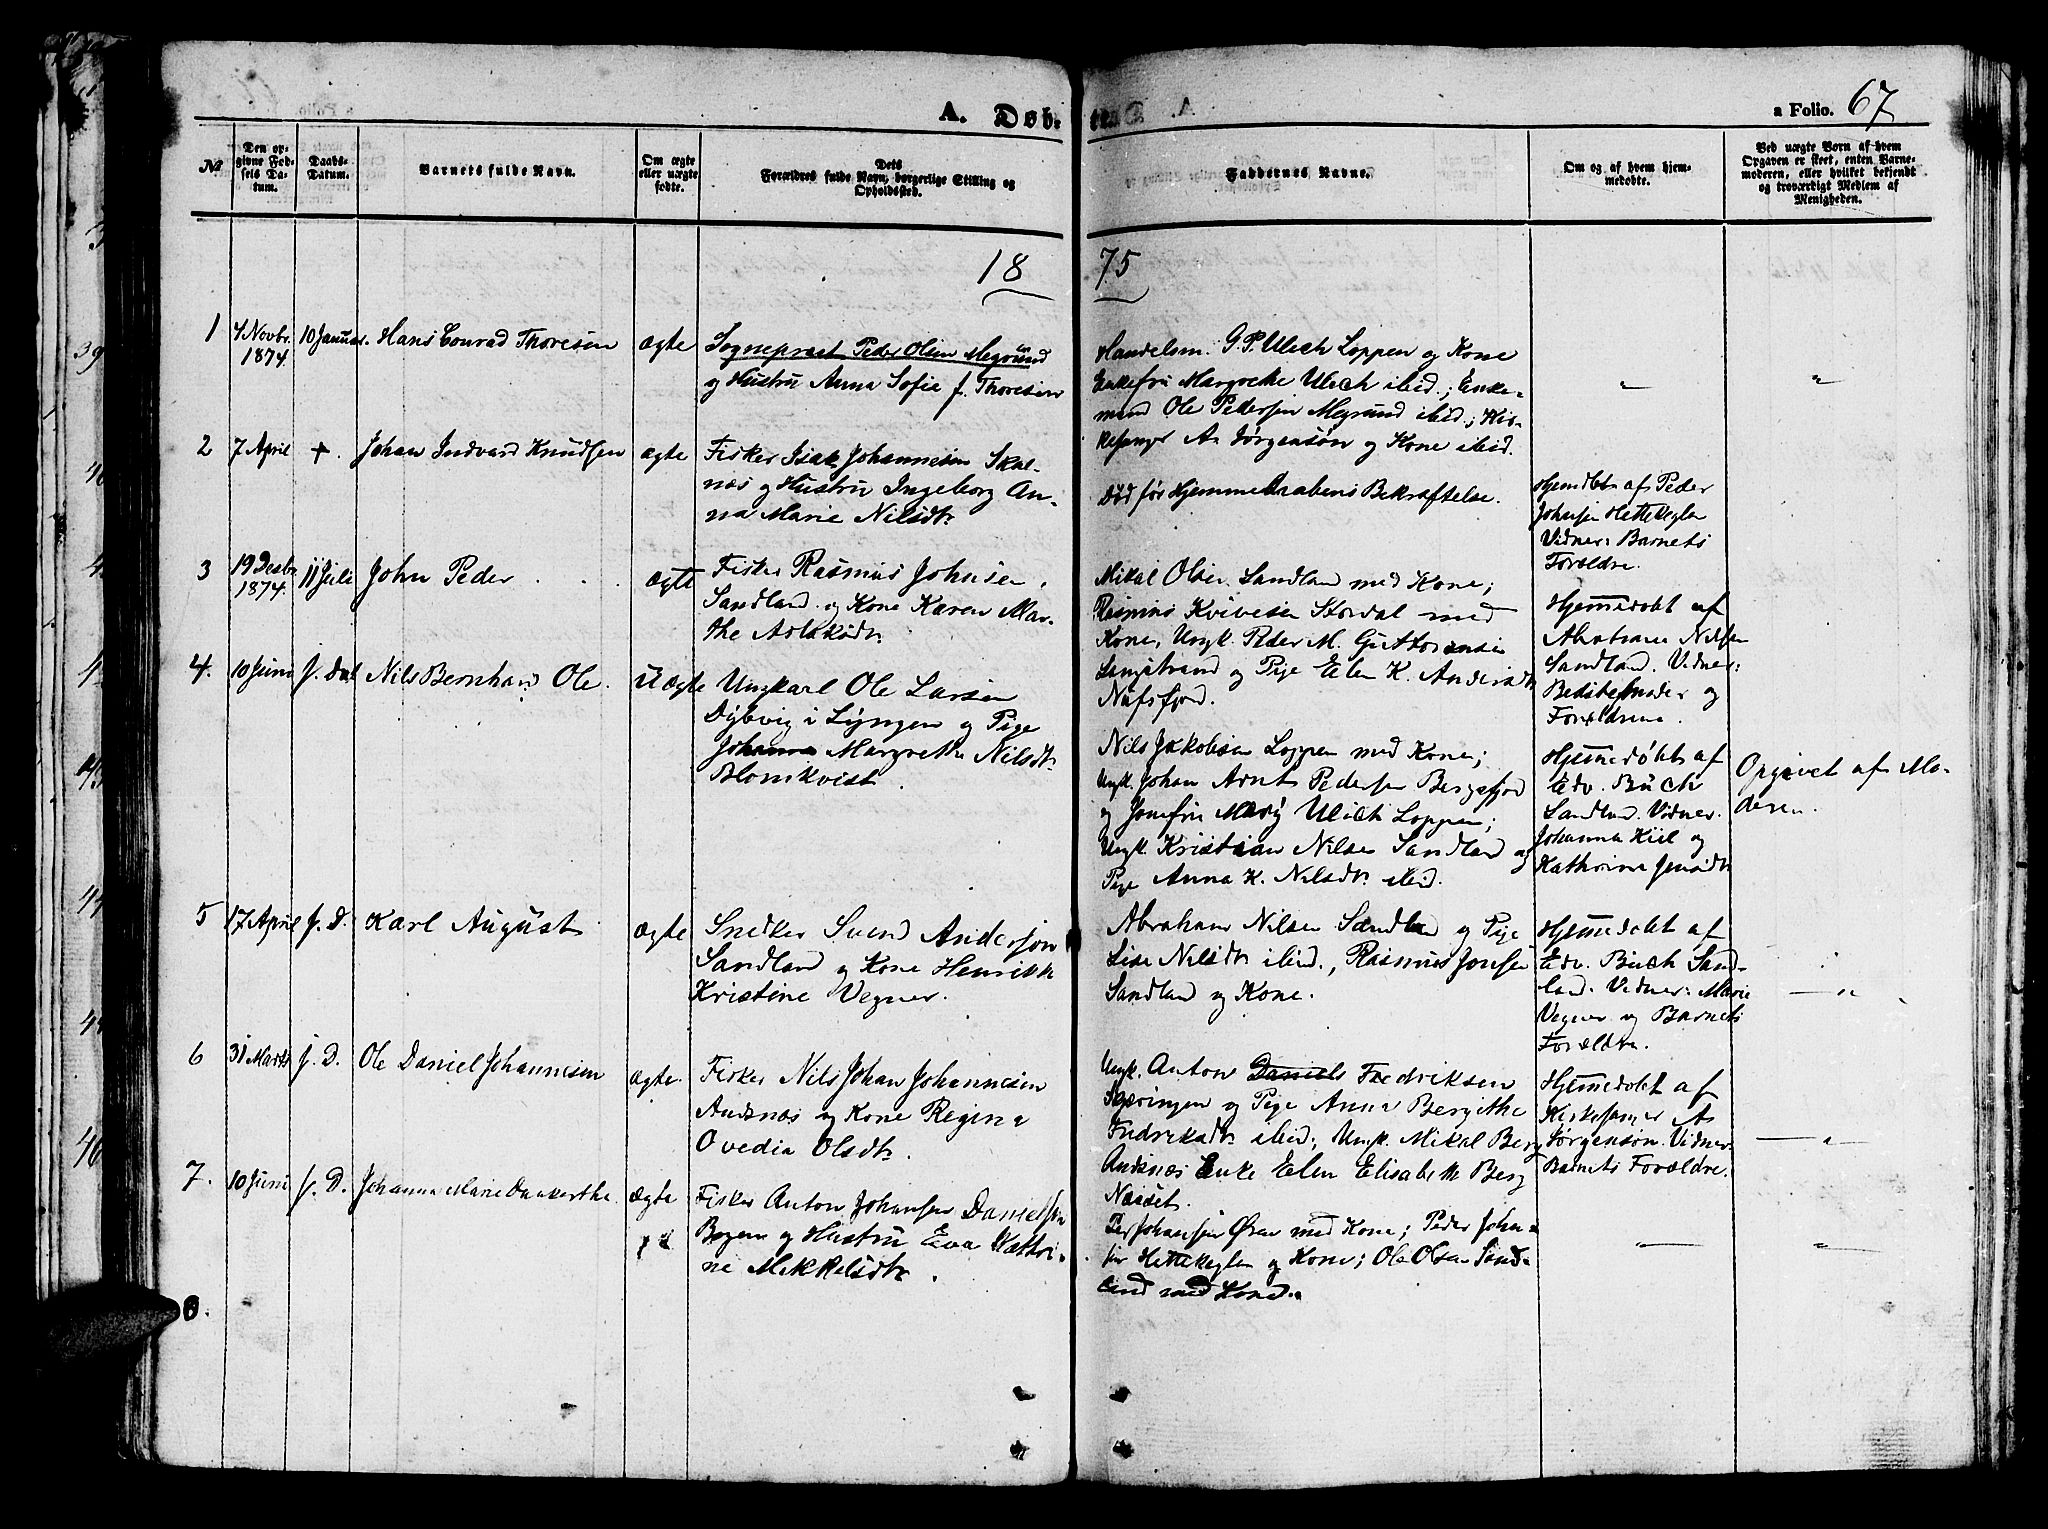 A. Døb.
a Folio. 67
№
Den op-
givne Fød-
sels Da-
tum.
Daabs-
Datum.
Varnets fulde Navn.
Om ægte
eller uægte
fødte.
Dets
Forældres fulde Navn, borgerlige Stilling og
Opholdssted.
Faddernes Navne.
Om og af hvem hjem-
medøbte.
Ved uægte Børn af hvem
Opgaven er skeet, enten Barne-
moderen, eller hvilket bekjendt
og troværdigt Medlem af
Menigheden.
18 75
1
4 Novbr.
1874.
10 Januar.
Hans Conrad Thoresen
ægte
Sognepræst Peder Olsen Megrund
og Hustru Anna Sofie f. Thoresen
Handelsm. G. P. Ulich Loppen og Kone
Enkefru Margrethe Ulich ibid.; Enke-
mand Ole Pedersen Megrund ibid; Kir-
kesanger A. Jørgensøn og Kone ibid.
"
"
2
7 April
+.
Johan Indvard Knudsen
ægte
Fisker Isak Johannesen Skal-
næs og Hustru Ingeborg An-
na Marie Nilsdtr.
Død før Hjemmedaabens Bekræftelse.
Hjemdbt af Peder
Johnsen Hettekeglen
Vidner: Barnets
Forældre.
3
19 Decbr
1874.
11 Juli
John Peder
ægte
Fisker Rasmus Johnsen
Sandland og Kone Karen Mar-
the Aslaksdtr.
Mikal Olsen Sandland med Kone;
Rasmus Kvivesen Stordal med
Kone, Ungk. Peder M. Guttormsen
Langstrand og Pige Elen K. Andersdtr
Nufsfjord.
Hjemmedøbt af
Abraham Nilsen
Sandland. Vidner:
Bedstefmoder og
Forældrene.
4.
10 Juni
f. Dat
Nils Bernhard Ole.
Uægte
Ungkarl Ole Larsen
Dybvig i Lyngen og Pige
Johanna Margrethe Nilsdtr.
Blomkvist.
Nils Jakobsen Loppen med Kone;
Ungk. Johan Arnt Pedersen Bergsfjord
og Jomfru Mary Ulich Loppen;
Ungk. Kristian Nilsen Sandland og
Pige Anna K. Nilsdtr. ibid.
Hjemmedøbt af
Edv. Buch
Sandland. Vidner.
Johanna Kiil og
Kathrine Jensdtr
Opgivet af Mo-
deren.
5
17 April
f. D.
Karl August
ægte
Snedker Svend Andersson
Sandland og Kone Henrikke
Kristine Vegner.
Abraham Nilsen Sandland og Pige
Lise Nilsdtr ibid., Rasmus Jonsen
Sandland og Kone.
Hjemmedøbt af
Edv. Buch Sand-
land. Vidner: Marie
Vegner og Barnets
Forældre.
"
6
31 Marts
f. D.
Ole Daniel Johannesen
ægte.
Fisker Nils Johan Johannesen
Andsnæs og Kone Regina
Ovedia Olsdtr.
Ungk. Anton Daniels Fredriksen
Skjæringen og Pige Anna Bergithe
Fredriksdtr ibid; Ungk. Mikal Berg
Andsnæs Enke Elen Elisabeth Berg
Næsset.
Hjemmedøbt af
Kirkesanger A.
Jørgensøn. Vidner.
Barnets Forældre.
"
7.
10 Juni
f. D.
Johanna Marie Dankerthe
ægte
Fisker Anton Johansen Danielsen
Bogen og Hustru Eva Kathri-
ne Mikkelsdtr.
Per Johansen Øren med Kone; Peder John-
sen Hettekeglen og Kone; Ole Olsen Sand-
land med Kone.
"
"
8.